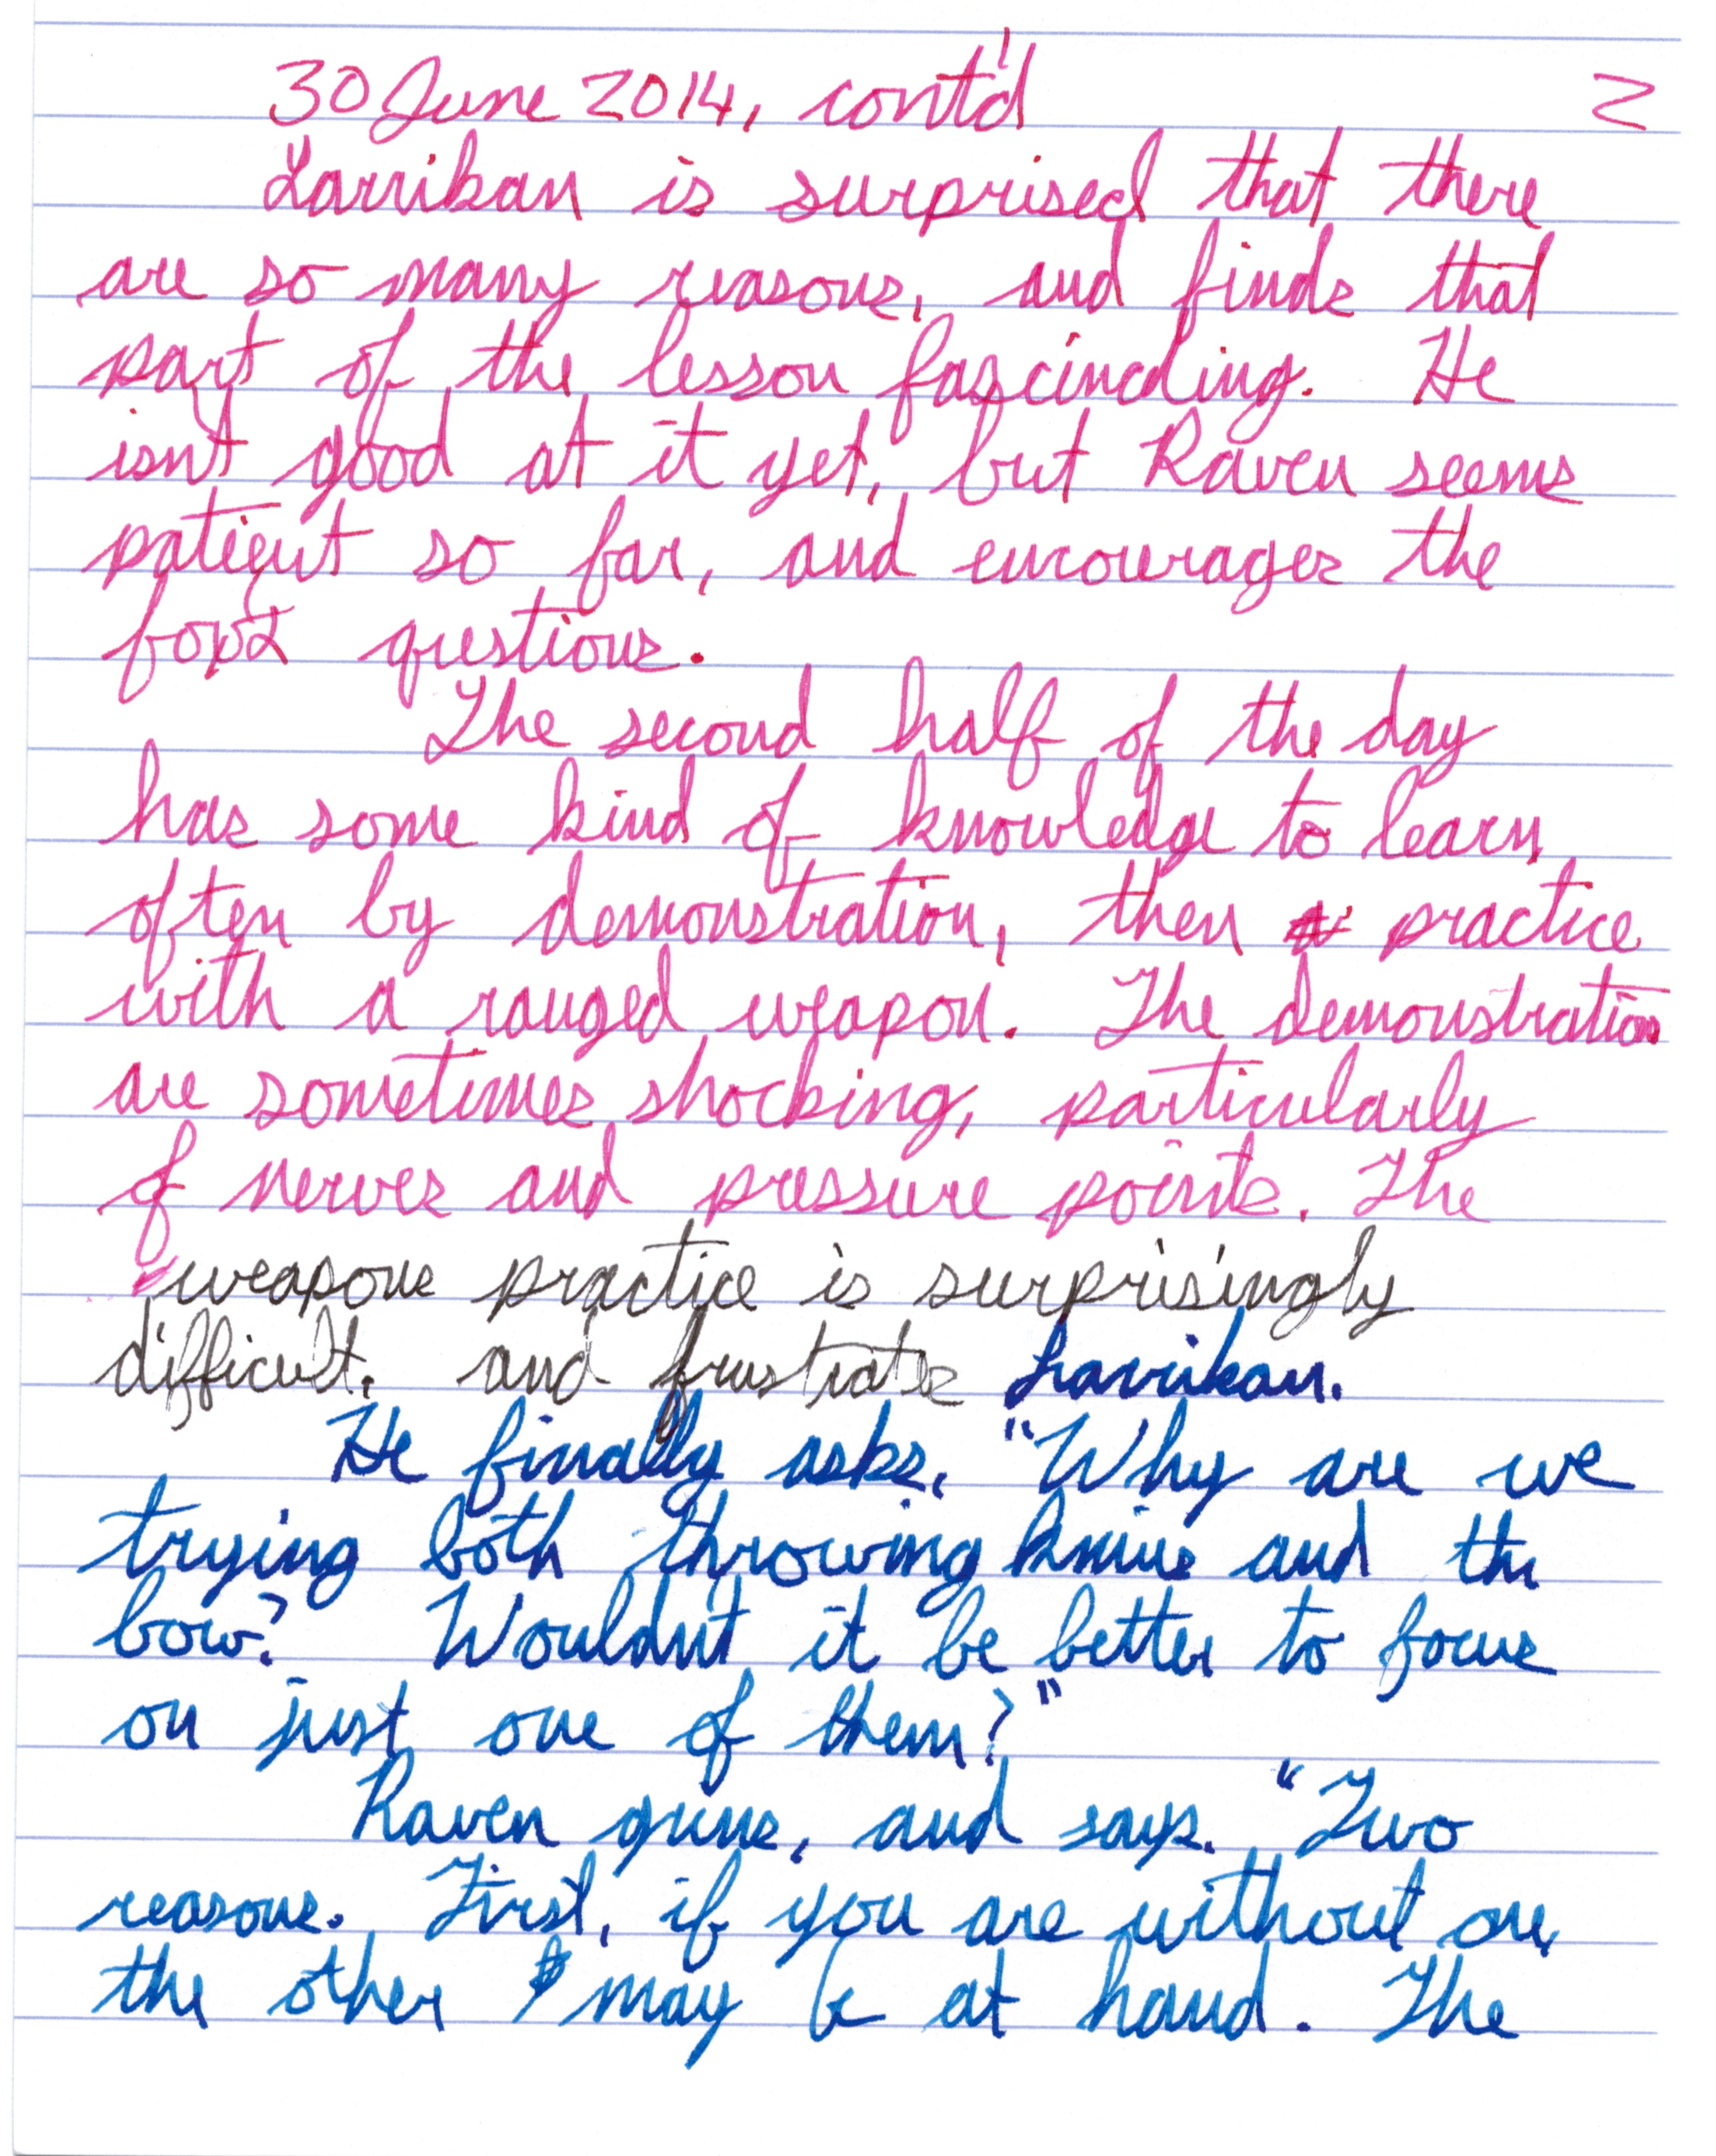 30 June 2014, cont'd 2
Larrikan is surprised that there
are so many reasons, and finds that
part of the lesson fascinating. He
isn't good at it yet, but Raven seems
patient so far, and encourages the
fox's questions.
The second half of the day
has some kind of knowledge to learn,
often by demonstration, then practice
with a ranged weapon. The demonstrations
are sometimes shocking, particularly
of nerves and pressure points. The
weapons practice is surprisingly
difficult, and frustrates Larrikan.
He finally asks, "Why are we
trying both throwing knives and the
bow? Wouldn't it be better to focus
on just one of them?"
Raven grins, and says, "Two
reasons. First, if you are without one,
the other may be at hand. The